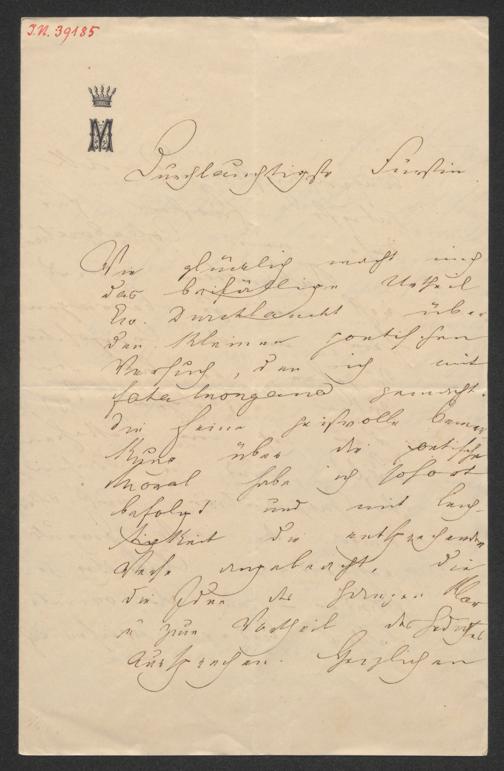 J.N. 39185
M
Durchlauchtigste Fürstin
Wie glücklich macht mich
das beifällige Urtheil
Ew. Durchlaucht über
den kleinen poetischen
Versuch, den ich mit
fata morgana gemacht.
die feine geistvolle Bemer
kung über die poetische
Moral habe ich sofort
befolgt und mit Leich-
tigkeit die entsprechenden
Verse angebracht, die
die Idee des Ganzen klar
u zum Vortheil des Gedichtes
aussprechen. Herzlichen